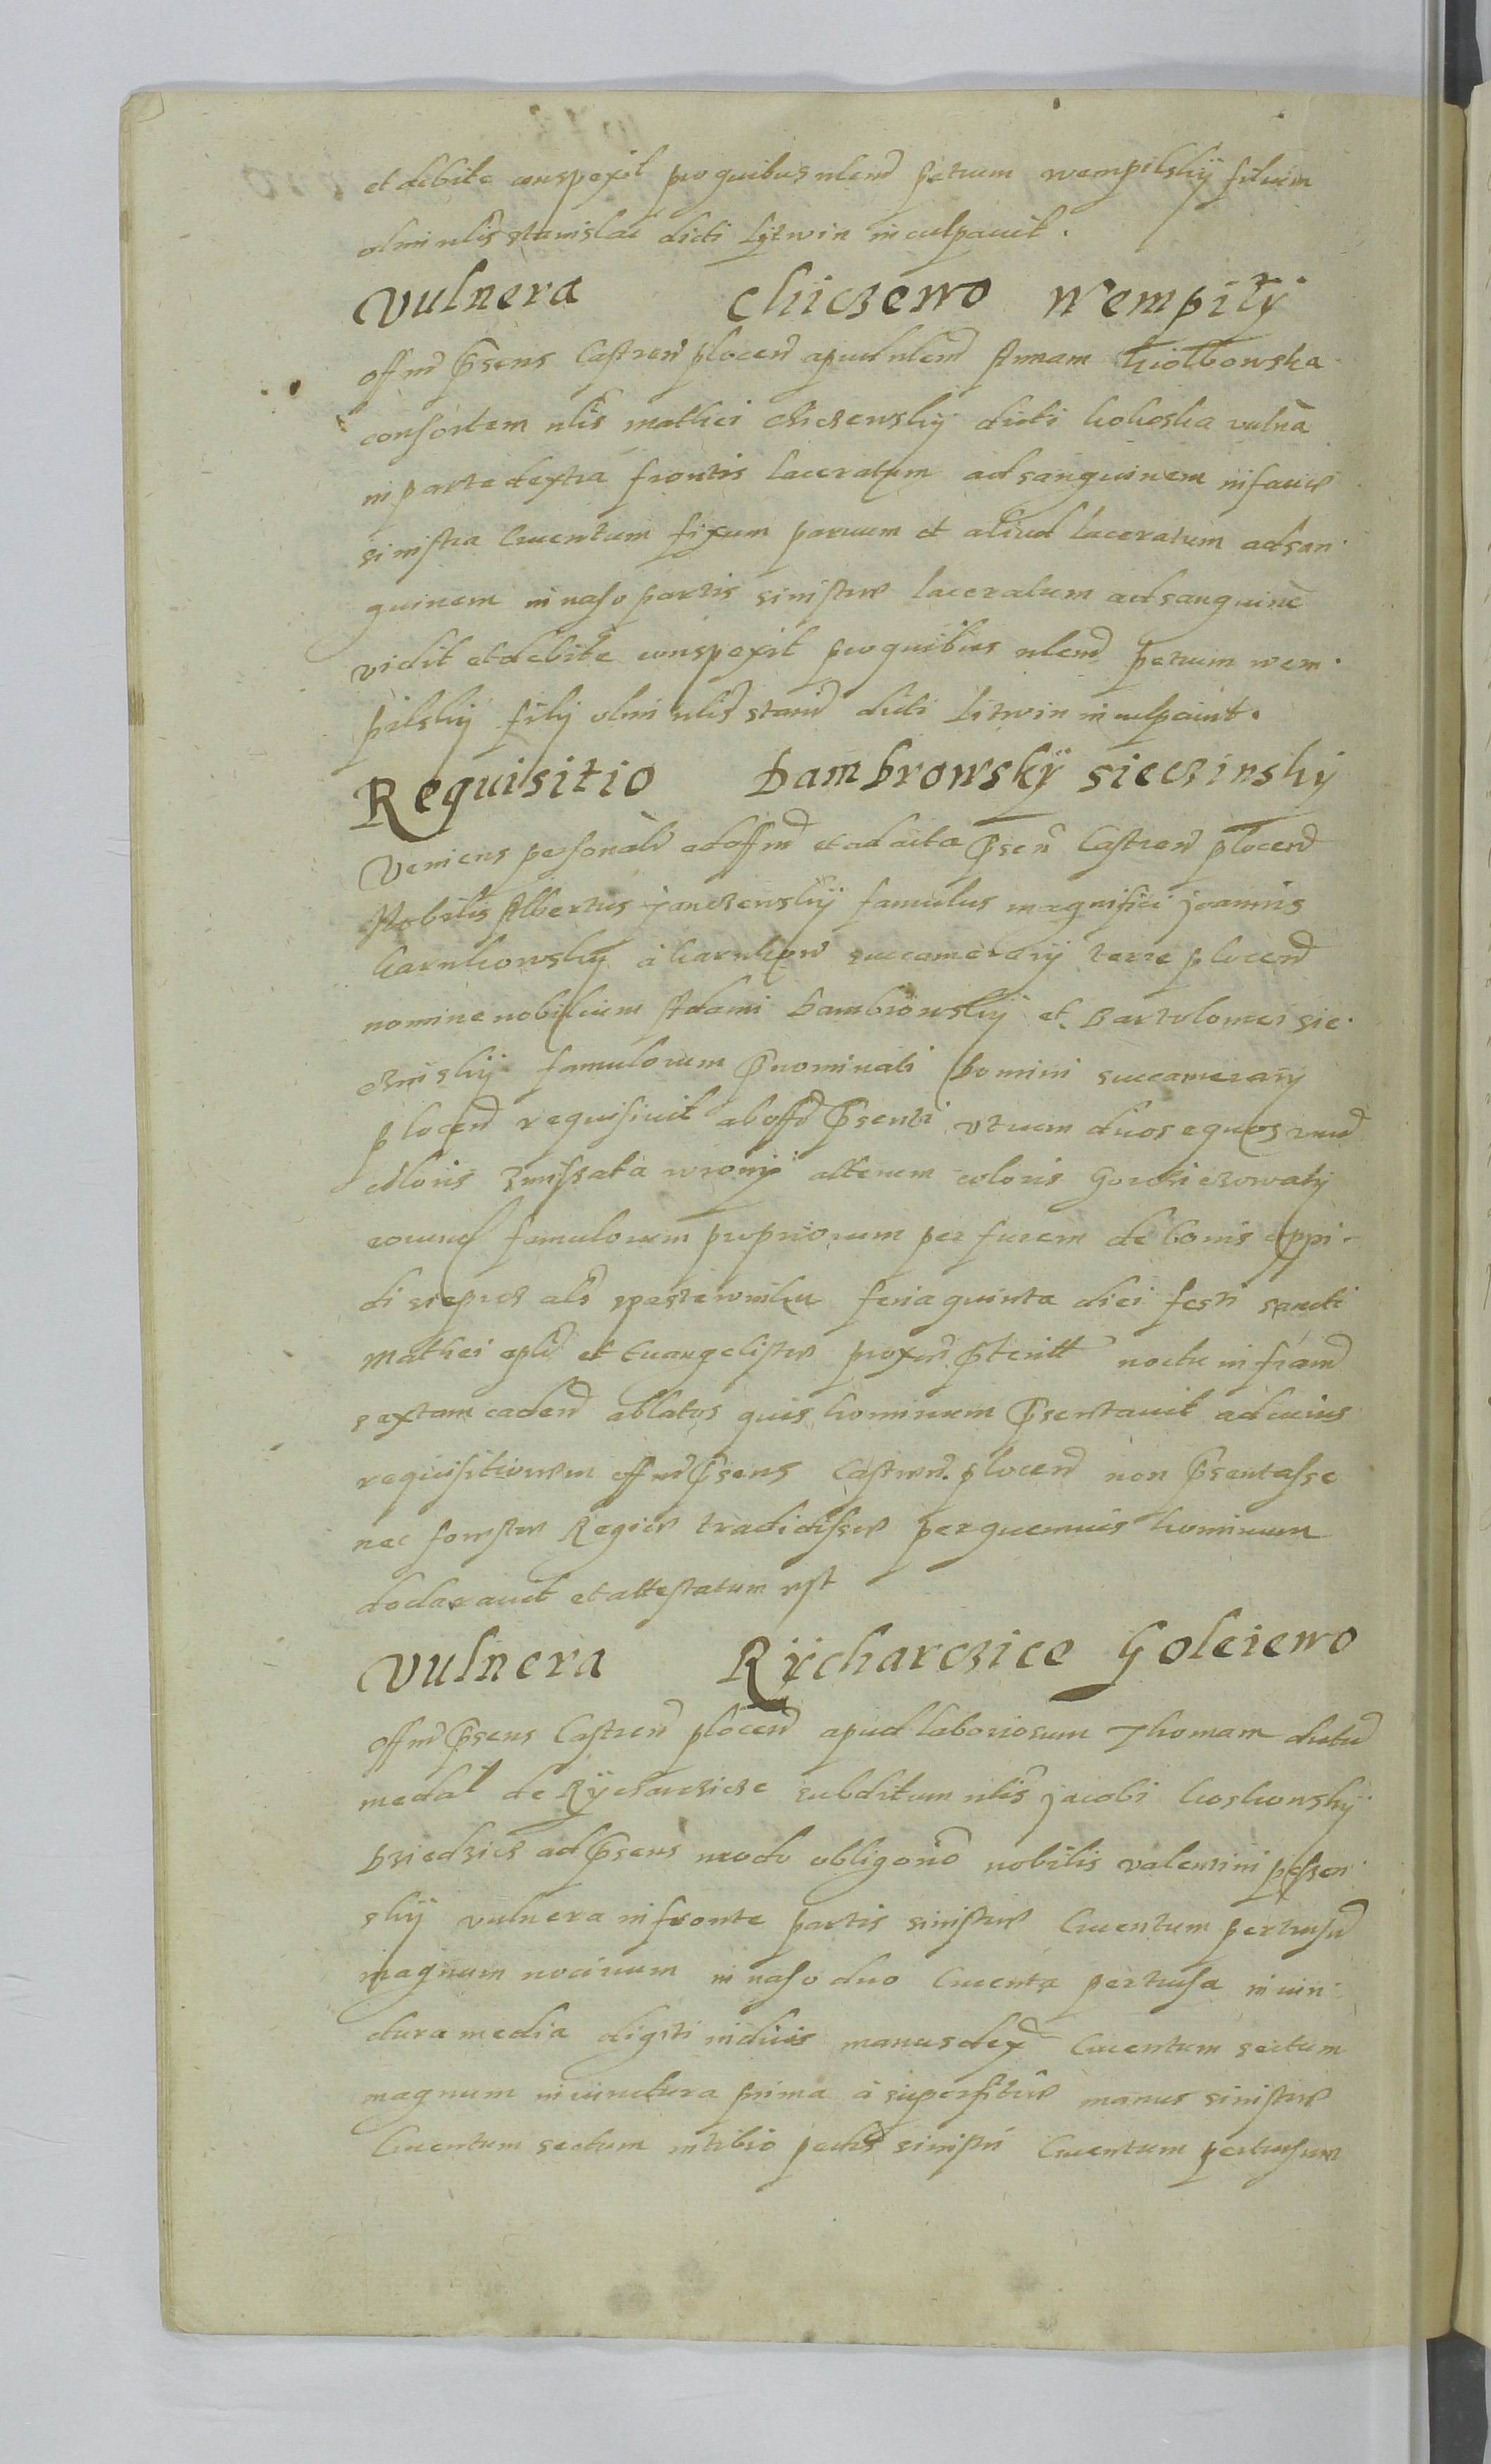 et debite conspexit pro quibus nlem̄ Petrum Wempilskÿ filium
olim nlis Stanislai dicti Lÿtwin inculpavit.
Vulnera Chiczewo Wempilÿ
Offm̄ p̄sens Castren̄ plocen̄ apud nlem̄ Annam Kiolbowska
consortem nlis Mathei Chiczewskÿ dicti kokoska vulnā
in parte dextra frontis laceratum ad sanguinem in fauce
sinistra Cruentum fixum parvum et aliud laceratum ad san
guinem in naso partis sinistre laceratum ad sanguinē
vidit et debite conspexit pro quibus nlem̄ Petrum Wem
pilskÿ filÿ olim nlis Stanis̄ dicti Litwin inculpavit.
Requisitio Dambrowskÿ sieczinskÿ
Veniens personalr̄ ad offm̄ et ad acta p̄sen̄ Castren̄ plocen̄
Nobilis Albertus Janczewskÿ famulus magnifici Joannis
Karnkowskÿ à Karnkow succamerarÿ terre plocen̄
nomine nobilium Adami Dambrowskÿ et Bartolomei sie
czinskÿ famulorum p̄nominati Domini succamerarÿ
plocen̄ requisivit ab offō p̄senti utrum duos equos unū
coloris wronÿ alterum coloris
eorund famulorum propriorum per furem de bonis oppi
di sieprcz als feria quinta diei festi sancti
Mathei apli et Euangeliste proxm̄ p̄terita noctu in feriam̄
sextam caden̄ ablatos quis hominum p̄sentavit ad cuius
requisitionem offm̄ p̄sens Castren̄. plocen̄ non p̄sentasse
nec Regie tradidisse per quemvis hominum
declaravit et attestatum est
Vulnera Rÿcharczice Goleiewo
Offm̄ p̄sens Castren̄ plocen̄ apud laboriosum Thomam dictū
medal de Rÿcharczicze subditum nlis Jacobi Koskowskÿ
Dziedzicz ad p̄sens modo obligōnis nobilis Valentini
skÿ vulnera in fronte partis sinistre Cruentum pertusū
magnum nocivum in naso duo Cruenta pertusa in iun
ctura media digiti indicis manus dex̄ Cruentum sectum
magnum in iunctura prima à superficie manus sinistre
Cruentum sectum in tibio pedis sinistri Cruentum pertusum